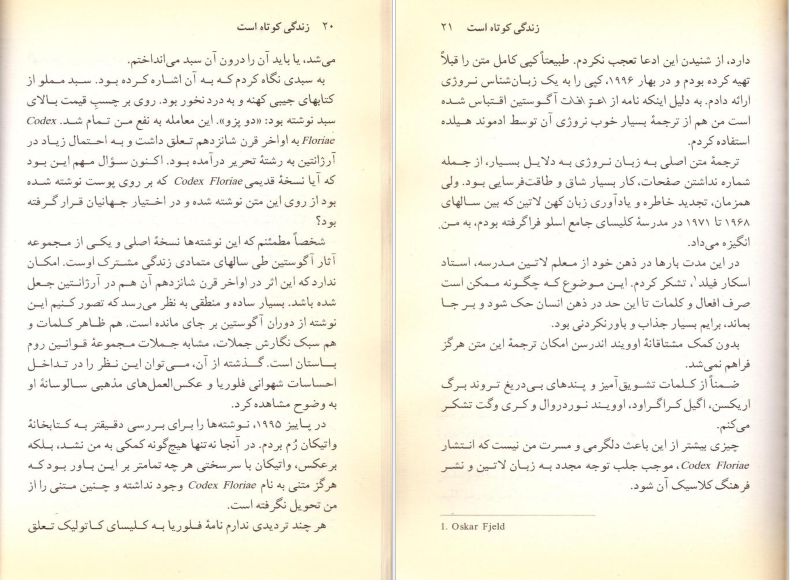 ۲۰ زندگی کوتاه است
می‌شد، یا باید آن را درون آن سبد می‌انداختم.
به سبدی نگاه کردم که به آن اشاره کرده بود. سبد مملو از
کتابهای جیبی کهنه و به درد نخور بود. روی بر چسبِ قیمت بالای
سبد نوشته بود: «دو پزو». این معامله به نفع من تمام شد. Codex
Floriae به اواخر قرن شانزدهم تعلق داشت و به احتمال زیاد در
آرژانتین به رشتهٔ تحریر درآمده بود. اکنون سؤال مهم این بود
که آیا نسخهٔ قدیمی Codex Floriae که بر روی پوست نوشته شده
بود از روی این متن نوشته شده و در اختیار جهانیان قرار گرفته
بود؟
شخصاً مطمئنم که این نوشته‌ها نسخهٔ اصلی و یکی از مجموعه
آثار آگوستین طی سالهای متمادی زندگی مشترک اوست. امکان
ندارد که این اثر در اواخر قرن شانزدهم آن هم در آرژانتین جعل
شده باشد. بسیار ساده و منطقی به نظر می‌رسد که تصور کنیم این
نوشته از دوران آگوستین بر جای مانده است. هم ظاهر کلمات و
هم سبک نگارش جملات، مشابه جملات مجموعهٔ قوانین روم
باستان است. گذشته از آن، می‌توان این نظر را در تداخل
احساسات شهوانی فلوریا و عکس‌العمل‌های مذهبی سالوسانهٔ او
به وضوح مشاهده کرد.
در پاییز ۱۹۹۵، نوشته‌ها را برای بررسی دقیقتر به کتابخانهٔ
واتیکان رُم بردم. در آنجا نه تنها هیچ‌گونه کمکی به من نشد، بلکه
برعکس، واتیکان با سرسختی هر چه تمامتر بر این باور بود که
هرگز متنی به نام Codex Floriae وجود نداشته و چنین متنی را از
من تحویل نگرفته است.
هر چند تردیدی ندارم نامهٔ فلوریا به کلیسای کاتولیک تعلق
زندگی کوتاه است ۲۱
دارد، از شنیدن این ادعا تعجب نکردم. طبیعتاً کپی کامل متن را قبلاً
تهیه کرده بودم و در بهار ۱۹۹۶، کپی را به یک زبان‌شناس نروژی
ارائه دادم. به دلیل اینکه نامه از اعترافات آگوستین اقتباس شده
است من هم از ترجمهٔ بسیار خوب نروژی آن توسط ادموند هیلده
استفاده کردم.
ترجمهٔ متن اصلی به زبان نروژی به دلایل بسیار، از جمله
شماره نداشتن صفحات، کار بسیار شاق و طاقت‌فرسایی بود. ولی
همزمان، تجدید خاطره و یادآوری زبان کهن لاتین که بین سالهای
۱۹۶۸ تا ۱۹۷۱ در مدرسهٔ کلیسای جامع اسلو فراگرفته بودم، به من
انگیزه می‌داد.
در این مدت بارها در ذهن خود از معلم لاتین مدرسه، استاد
اسکار فیلد۱، تشکر کردم. این موضوع که چگونه ممکن است
صرف افعال و کلمات تا این حد در ذهن انسان حک شود و بر جا
بماند، برایم بسیار جذاب و باورنکردنی بود.
بدون کمک مشتاقانهٔ اوویند اندرسن امکان ترجمهٔ این متن هرگز
فراهم نمی‌شد.
ضمناً از کلمات تشویق‌آمیز و پندهای بی‌دریغ تروند برگ
اریکسن، اگیل کراگراود، اوویند نوردروال و کری وگت تشکر
می‌کنم.
چیزی بیشتر از این باعث دلگرمی و مسرت من نیست که انتشار
Codex Floriae، موجب جلب توجه مجدد به زبان لاتین و نشر
فرهنگ کلاسیک آن شود.
1. Oskar Fjeld